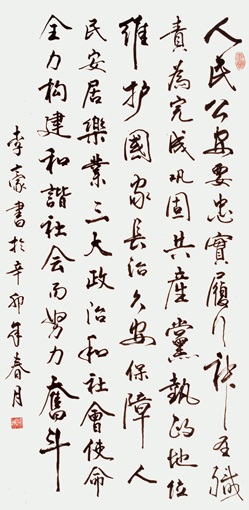 人民公安要忠實履行神圣職
責為完成巩固共產黨執政地位
維护國家長治久安保障人
民安居樂業三大政治和社會使命
全力构建和諧社会而努力奮斗
李豪書於辛卯年春月